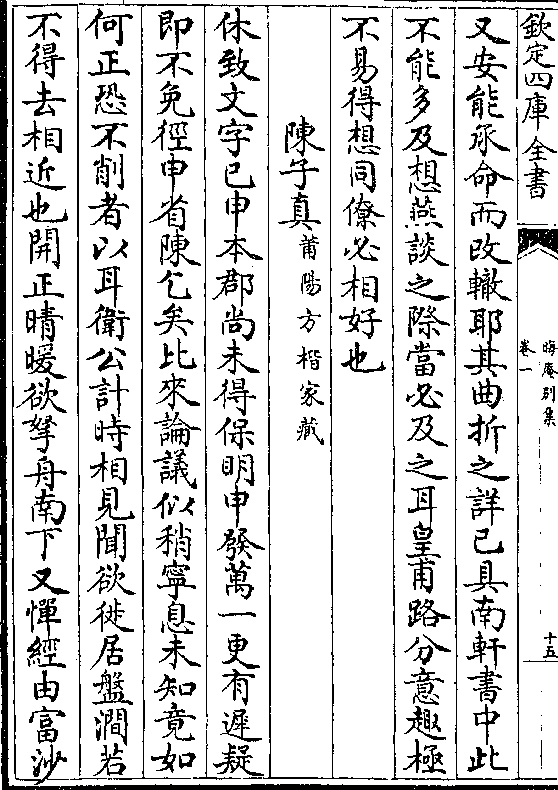 欽定四庫全書
晦庵別集
卷一
十五
又安能承命而改轍耶其曲折之詳已具南軒書中此
不能多及想燕談之際當必及之耳皇甫路分意趣極
不易得想同僚必相好也
陳子真莆陽方楷家藏
休致文字已申本郡尚未得保明申發萬一更有遲疑
即不免徑申省陳乞矣比來論議似稍寧息未知竟如
何正恐不削者以耳衛公計時相見聞欲徙居盤澗若
不得去相近也開正晴暖欲拏舟南下又憚經由富沙